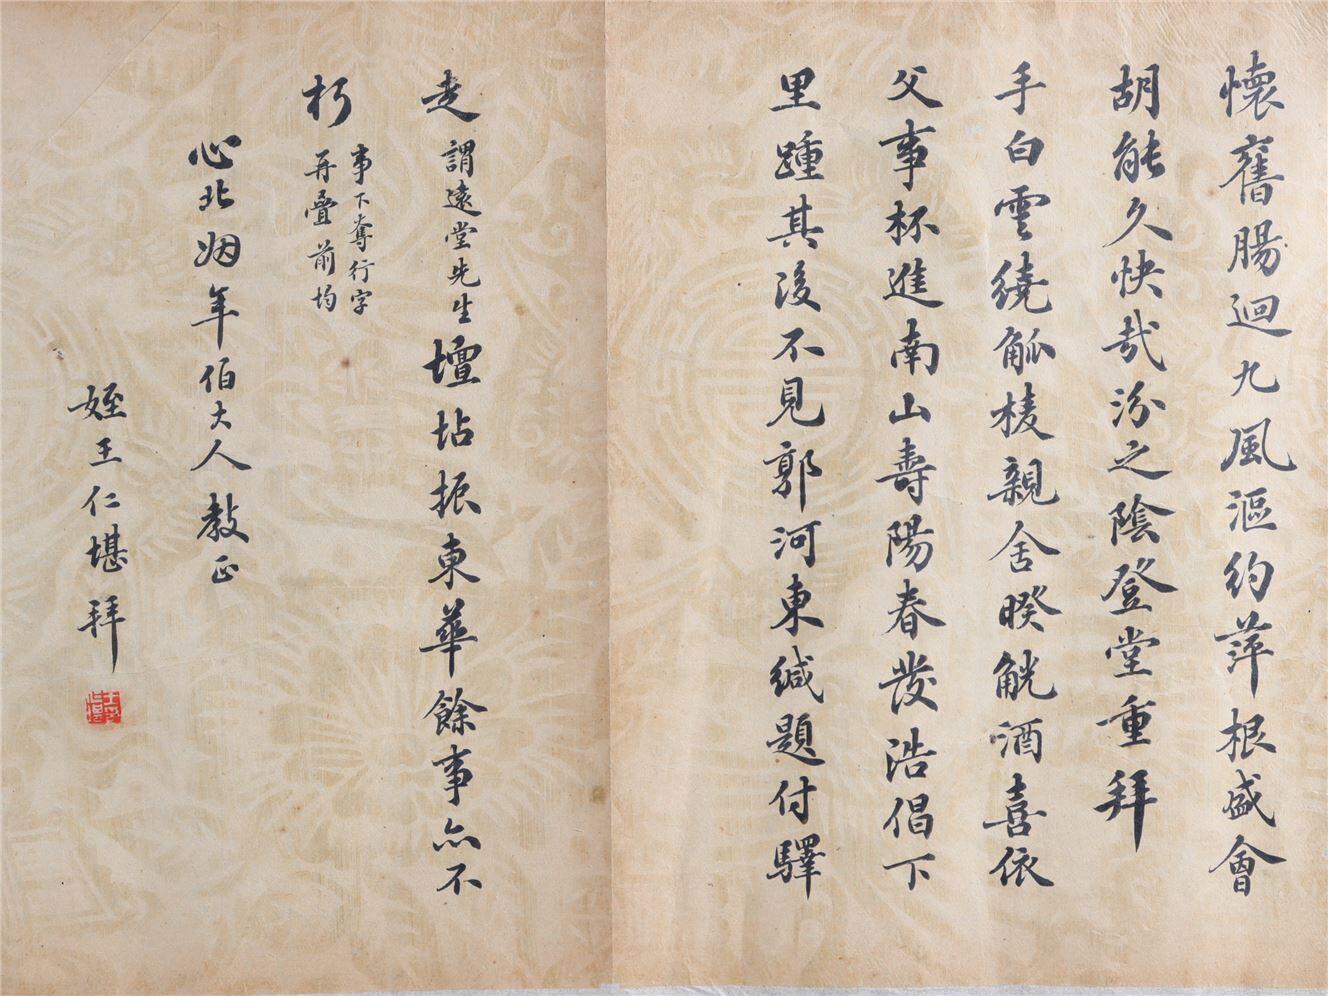 懷舊腸迴九風漚約萍根盛會
胡能久快哉汾之陰登堂重拜
手白雲繞觚棱親舍暌觥酒喜依
父事杯進南山壽陽春發浩倡下
里踵其後不見郭河東緘題付驛
走謂遠堂先生壇坫振東華餘事亦不
朽事下奪行字
再疊前均
心北姻年伯大人教正
姪王仁堪拜
王仁堪